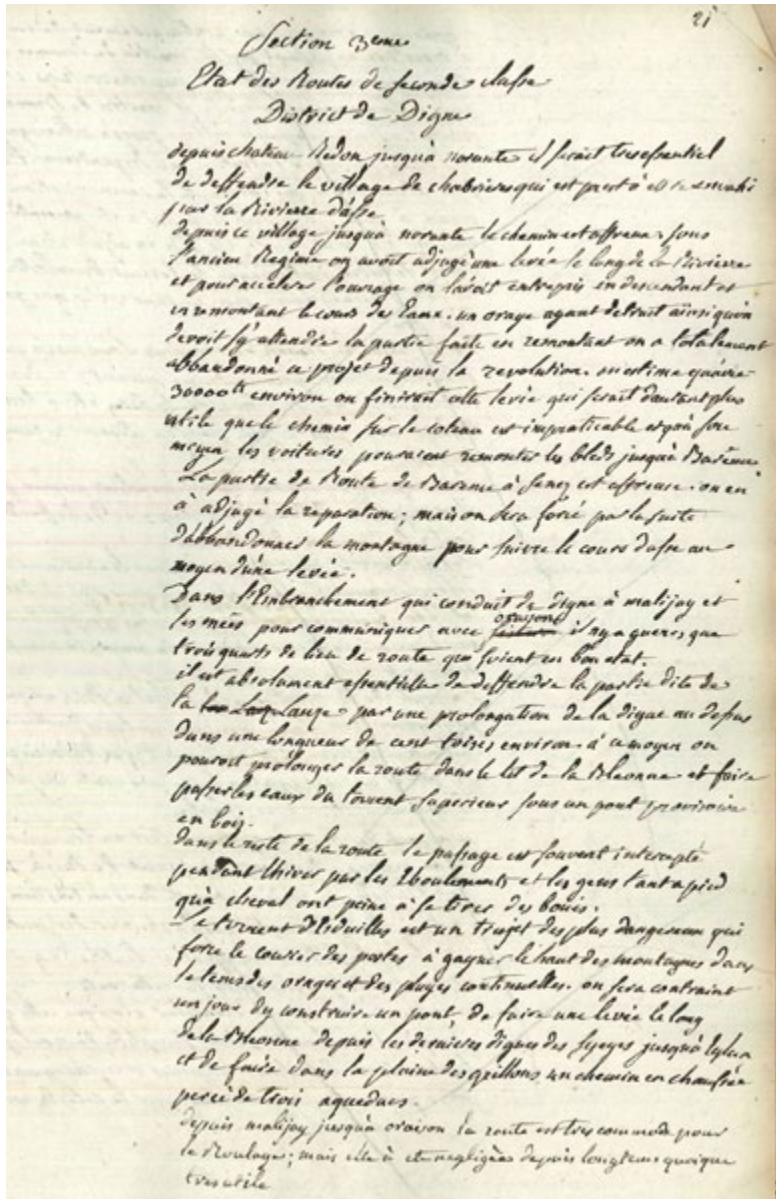 21
Section 3eme
Etat des Routes de seconde classe
District de Digne
depuis chateau Redon jusqu'à norante il serait tres essentiel
de deffendre le village de chabrieres qui est prest à etre envahi
par la Rivierre d'asse.
depuis ce village jusqu'à norante le chemin est affreux. sous
l'ancien Regime on avoit adjugé une levée le long de la Rivierre
et pour accelerer l'ouvrage on l'avoit entrepris en descendant et
en remontant le cours des Eaux. un orage ayant detruit ainsi qu'on
devoit s'y attendre la partie faite en remontant on a totalement
abbandonné ce projet depuis la revolution. on estime qu'avec
30000tt environ on finirait cette levée qui serait d'autant plus
utile que le chemin sur le coteau est impraticable et qu'à son
moyen les voitures pouraient remonter les bleds jusqu'à Barême
La partie de Route de Barême à senez est affreuse. on en
à adjugé la reparation; mais on sera forcé par la suite
d'abbandonner la montagne pour suivre le cours d'asse au
moyen d'une levée.
Dans l'Embranchement qui conduit de digne à malijay et
les mées pour communiquer avec oraison il n'y a gueres que
trois quarts de lieu de route qui soient en bon etat.
il est absolument essentielle de deffendre la partie dite de
la Lauze par une prolongation de la digue au dessus
dans une longueur de cent toises environ. à ce moyen on
pouroit prolonger la route dans le lit de la Bleonne et faire
passer les eaux du torrent superieur sous un pont provisoire
en bois.
dans le reste de la route le passage est souvent intercepté
pendant l'hiver par les Eboulements et les gens tant à pied
qu'à cheval ont peine à se tirer des boues.
Le torrent d'Eiduilles est un trajet des plus dangereux qui
force le courier des postes à gagner le haut des montagnes dans
le tems des orages et des pluyes continuelles. on sera contraint
un jour d'y construire un pont de faire une levée le long
de la Bleonne depuis les dernieres digues des sieyes jusqu'à
et de faire dans la plaine des grillons un chemin en chaussée
percé de trois aqueducs.
depuis malijay jusqu'à oraison la route est tres commode pour
le Roulage; mais elle à eté negligée depuis longtems quoique
tres utile